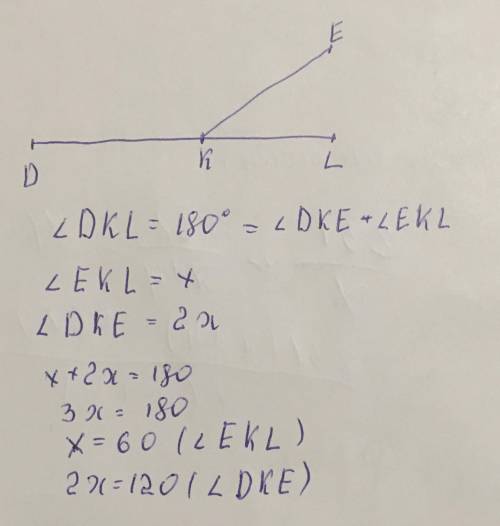 E
D K L
∠DKL = 180° = ∠DKE + ∠EKL
∠EKL = x
∠DKE = 2x
x+2x = 180
3x = 180
x = 60 (∠EKL)
2x=120 (∠DKE)